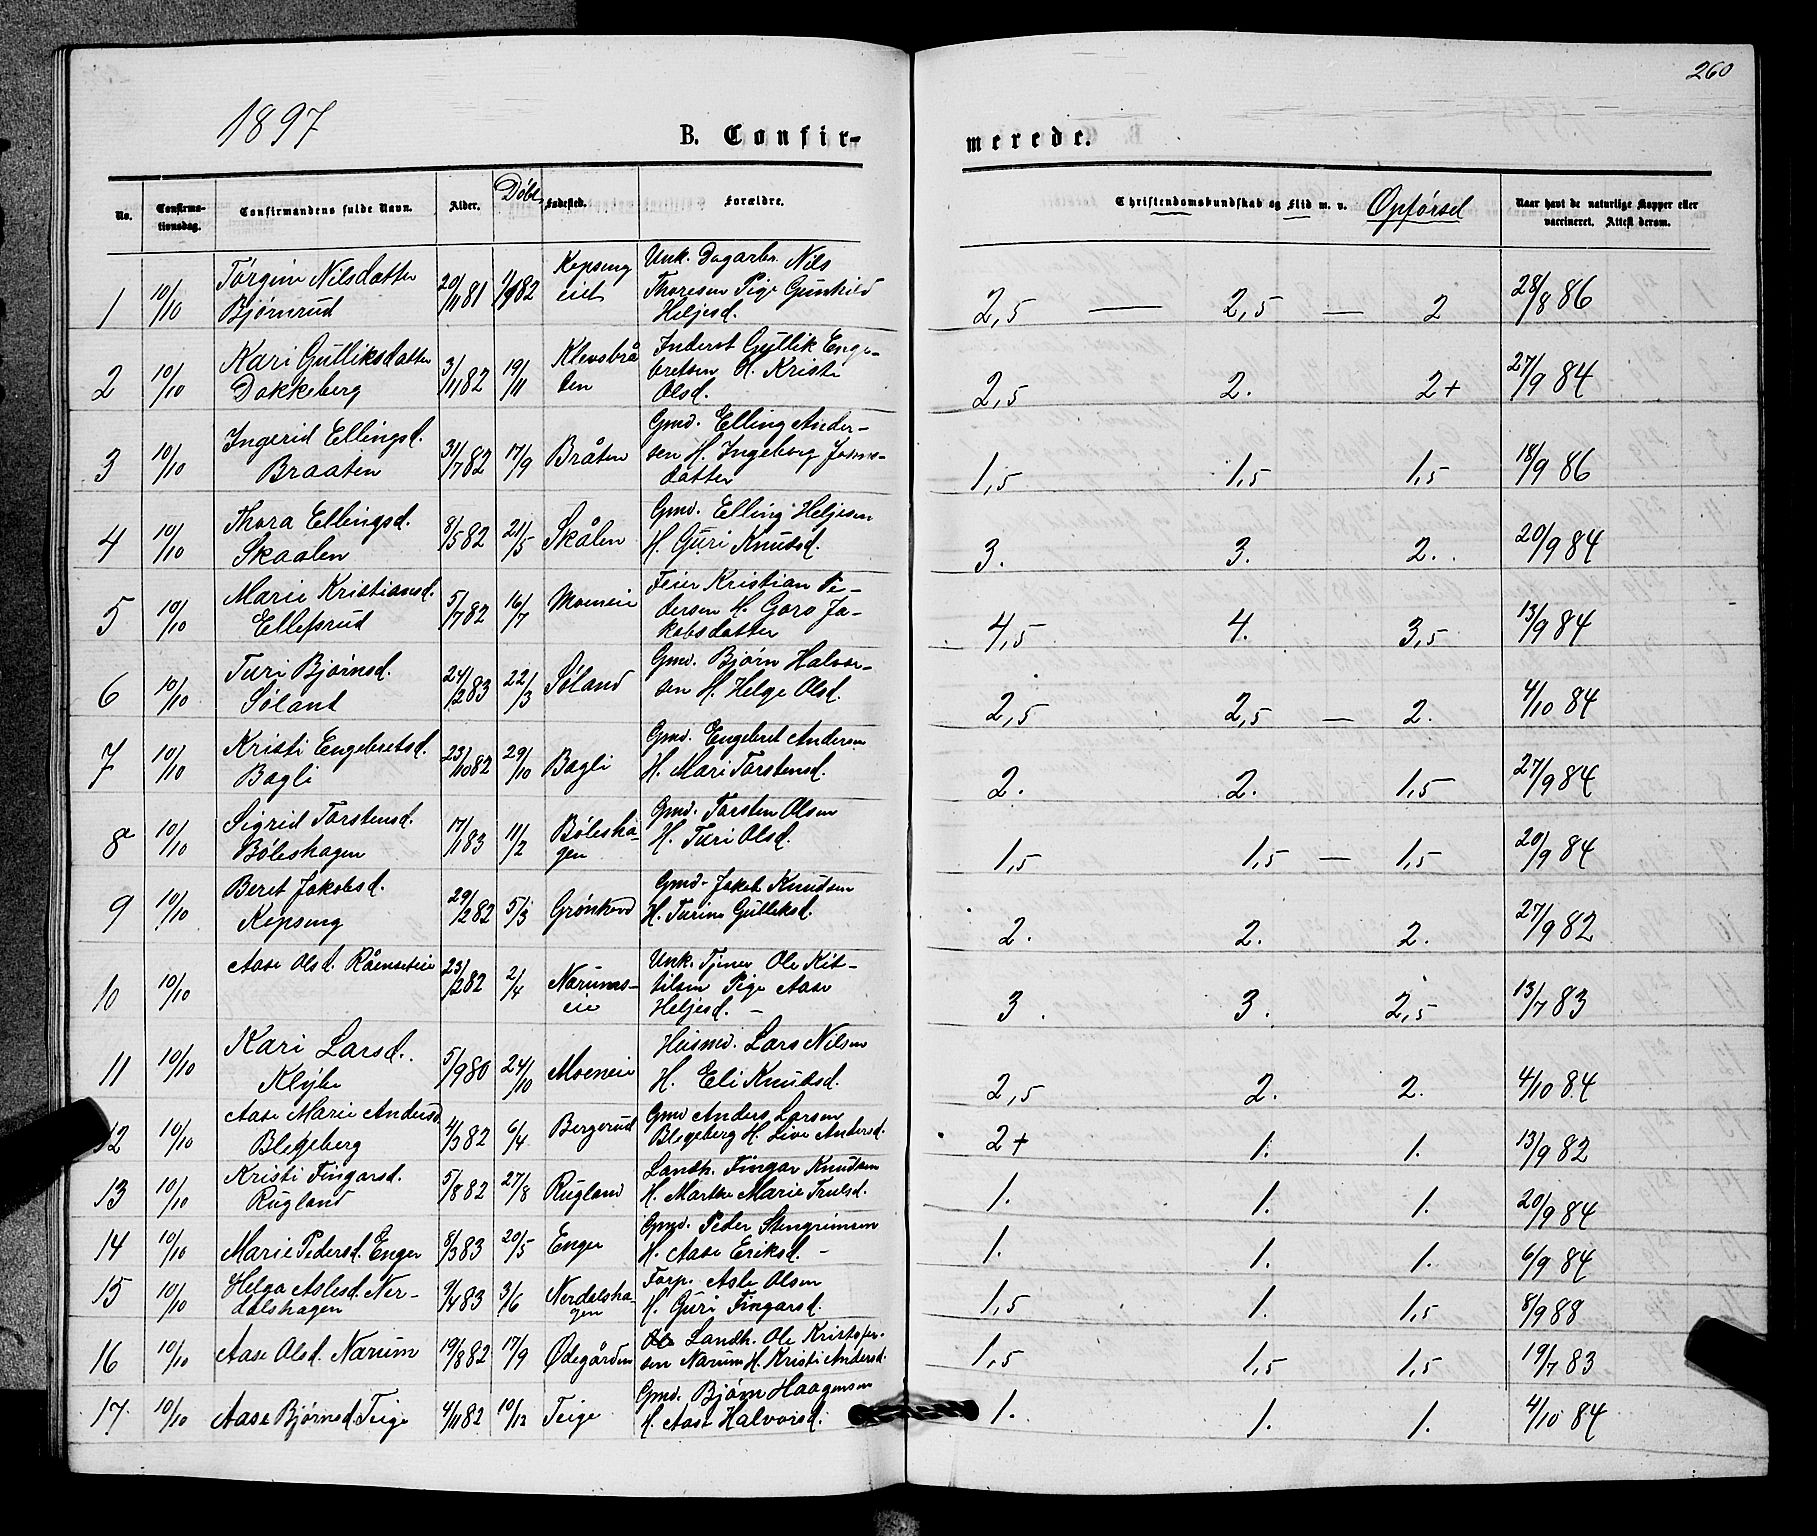 260
1897
B. Confir-
merede.
No.
Confirma-
tionsdag.
Confirmandens fulde Navn.
Alder.
Døbt
Fødested.
Forældre.
Christendomskundskab og Flid m. v. Opførsel
Naar havt de naturlige Kopper eller
vaccineret. Attest derom.
1 10/10 Torgine Nilsdatter Bjørnrud 20/11 81 82 Kopseng eiet Unk. Dagarbr. Nils Thoresen Pige Gunhild Heljesd. 2,5 — 2,5 — 2 28/8 86
2 10/10 Kari Gulliksdatter Dokkeberg 3/11 82 19/11 Klevsbrå ten Inderst Gullik Enge- bretsen H. Kristi Olsd. 2,5 2. 2+ 27/9 84
3 10/10 Ingerid Ellingsd. Braaten 31/7 82 17/9 Bråten Gmd. Elling Ander- sen H. Ingeborg datter 1,5 1,5 1,5 18/9 86
4 10/10 Thora Ellingsd. Skaalen 8/5 82 21/5 Skålen Gmd. Elling Heljesen H. Guri Knudsd. 3. 3. 2. 20/9 84
5 10/10 Marie Kristiansd. Ellefsrud 5/7 82 16/7 Moeneie Feier Kristian Pe- dersen H. Goro Ja- kobsdatter 4,5 4. 3,5 13/9 84
6 10/10 Turi Bjørnsd. Søland 24/2 83 22/3 Søland Gmd. Bjørn Halvor- sen H. Helge Olsd. 2,5 2,5 — 2. 4/10 84
7 10/10 Kristi Engebretsd. Bagli 23/10 82 29/10 Bagli Gmd. Engebret Andersen H. Mari Torstensd. 2. 2. 1,5 27/9 84
8 10/10 Sigrid Torstensd. Bøleshagen 17/1 83 11/2 Bølesha- gen Gmd. Torsten Olsen H. Turi Olsd. 1,5 1,5 — 1,5 20/9 84
9 10/10 Beret Jakobsd. Kopseng 2/2 82 5/3 Grønhovd Gmd. Jakob Knudsen H. Turine Gulliksd. 2. 2. 2. 27/9 82
10 10/10 Aase Olsd. Råenseteie 23/2 82 2/4 Narums- eie Unk. Tjener Ole Kit- tilsen Pige Aase Heljesd. — 3. 3. 2,5 13/7 83
11 10/10 Kari Larsd. Klybe 5/9 80 24/10 Moeneie Husmd. Lars Nilsen H. Eli Knutsd. 2,5 2. 2. 4/10 84
12 10/10 Aase Marie Andersd. Blegeberg 4/3 82 6/4 Bergerud Gmd Anders Larsen Blegeberg H. Live Andersd. 2+ 1. 1. 13/9 82
13 10/10 Kristi Fingarsd. Rugland 5/8 82 27/8 Rugland Landh. Fingar Knudsen H. Marthe Marie Trulsd. 1. 1. 1. 20/9 84
14 10/10 Marie Pedersd. Enger 8/3 83 20/5 Enger Gmd. Peder Stengrimsen H. Aase Eriksd. — 1. 1. 1. 6/9 84
15 10/10 Helga Aslesd. Ner- dalshagen 9/4 83 3/6 Nerdalsha- gen Torp. Asle Olsen H. Guri Fingarsd. 1,5 1. 1,5 8/9 88
16 10/10 Aase Olsd. Narum 19/8 82 17/9 Ødegården Landh. Ole Kristofer- sen Narum H. Kristi Andersd. 1,5 1,5 1,5 19/7 83
17. 10/10 Aase Bjørnsd. Teige 4/11 82 10/12 Teige Gmd. Bjørn Haagensen H. Aase Halvorsd. 1. 1. 1. 4/10 84